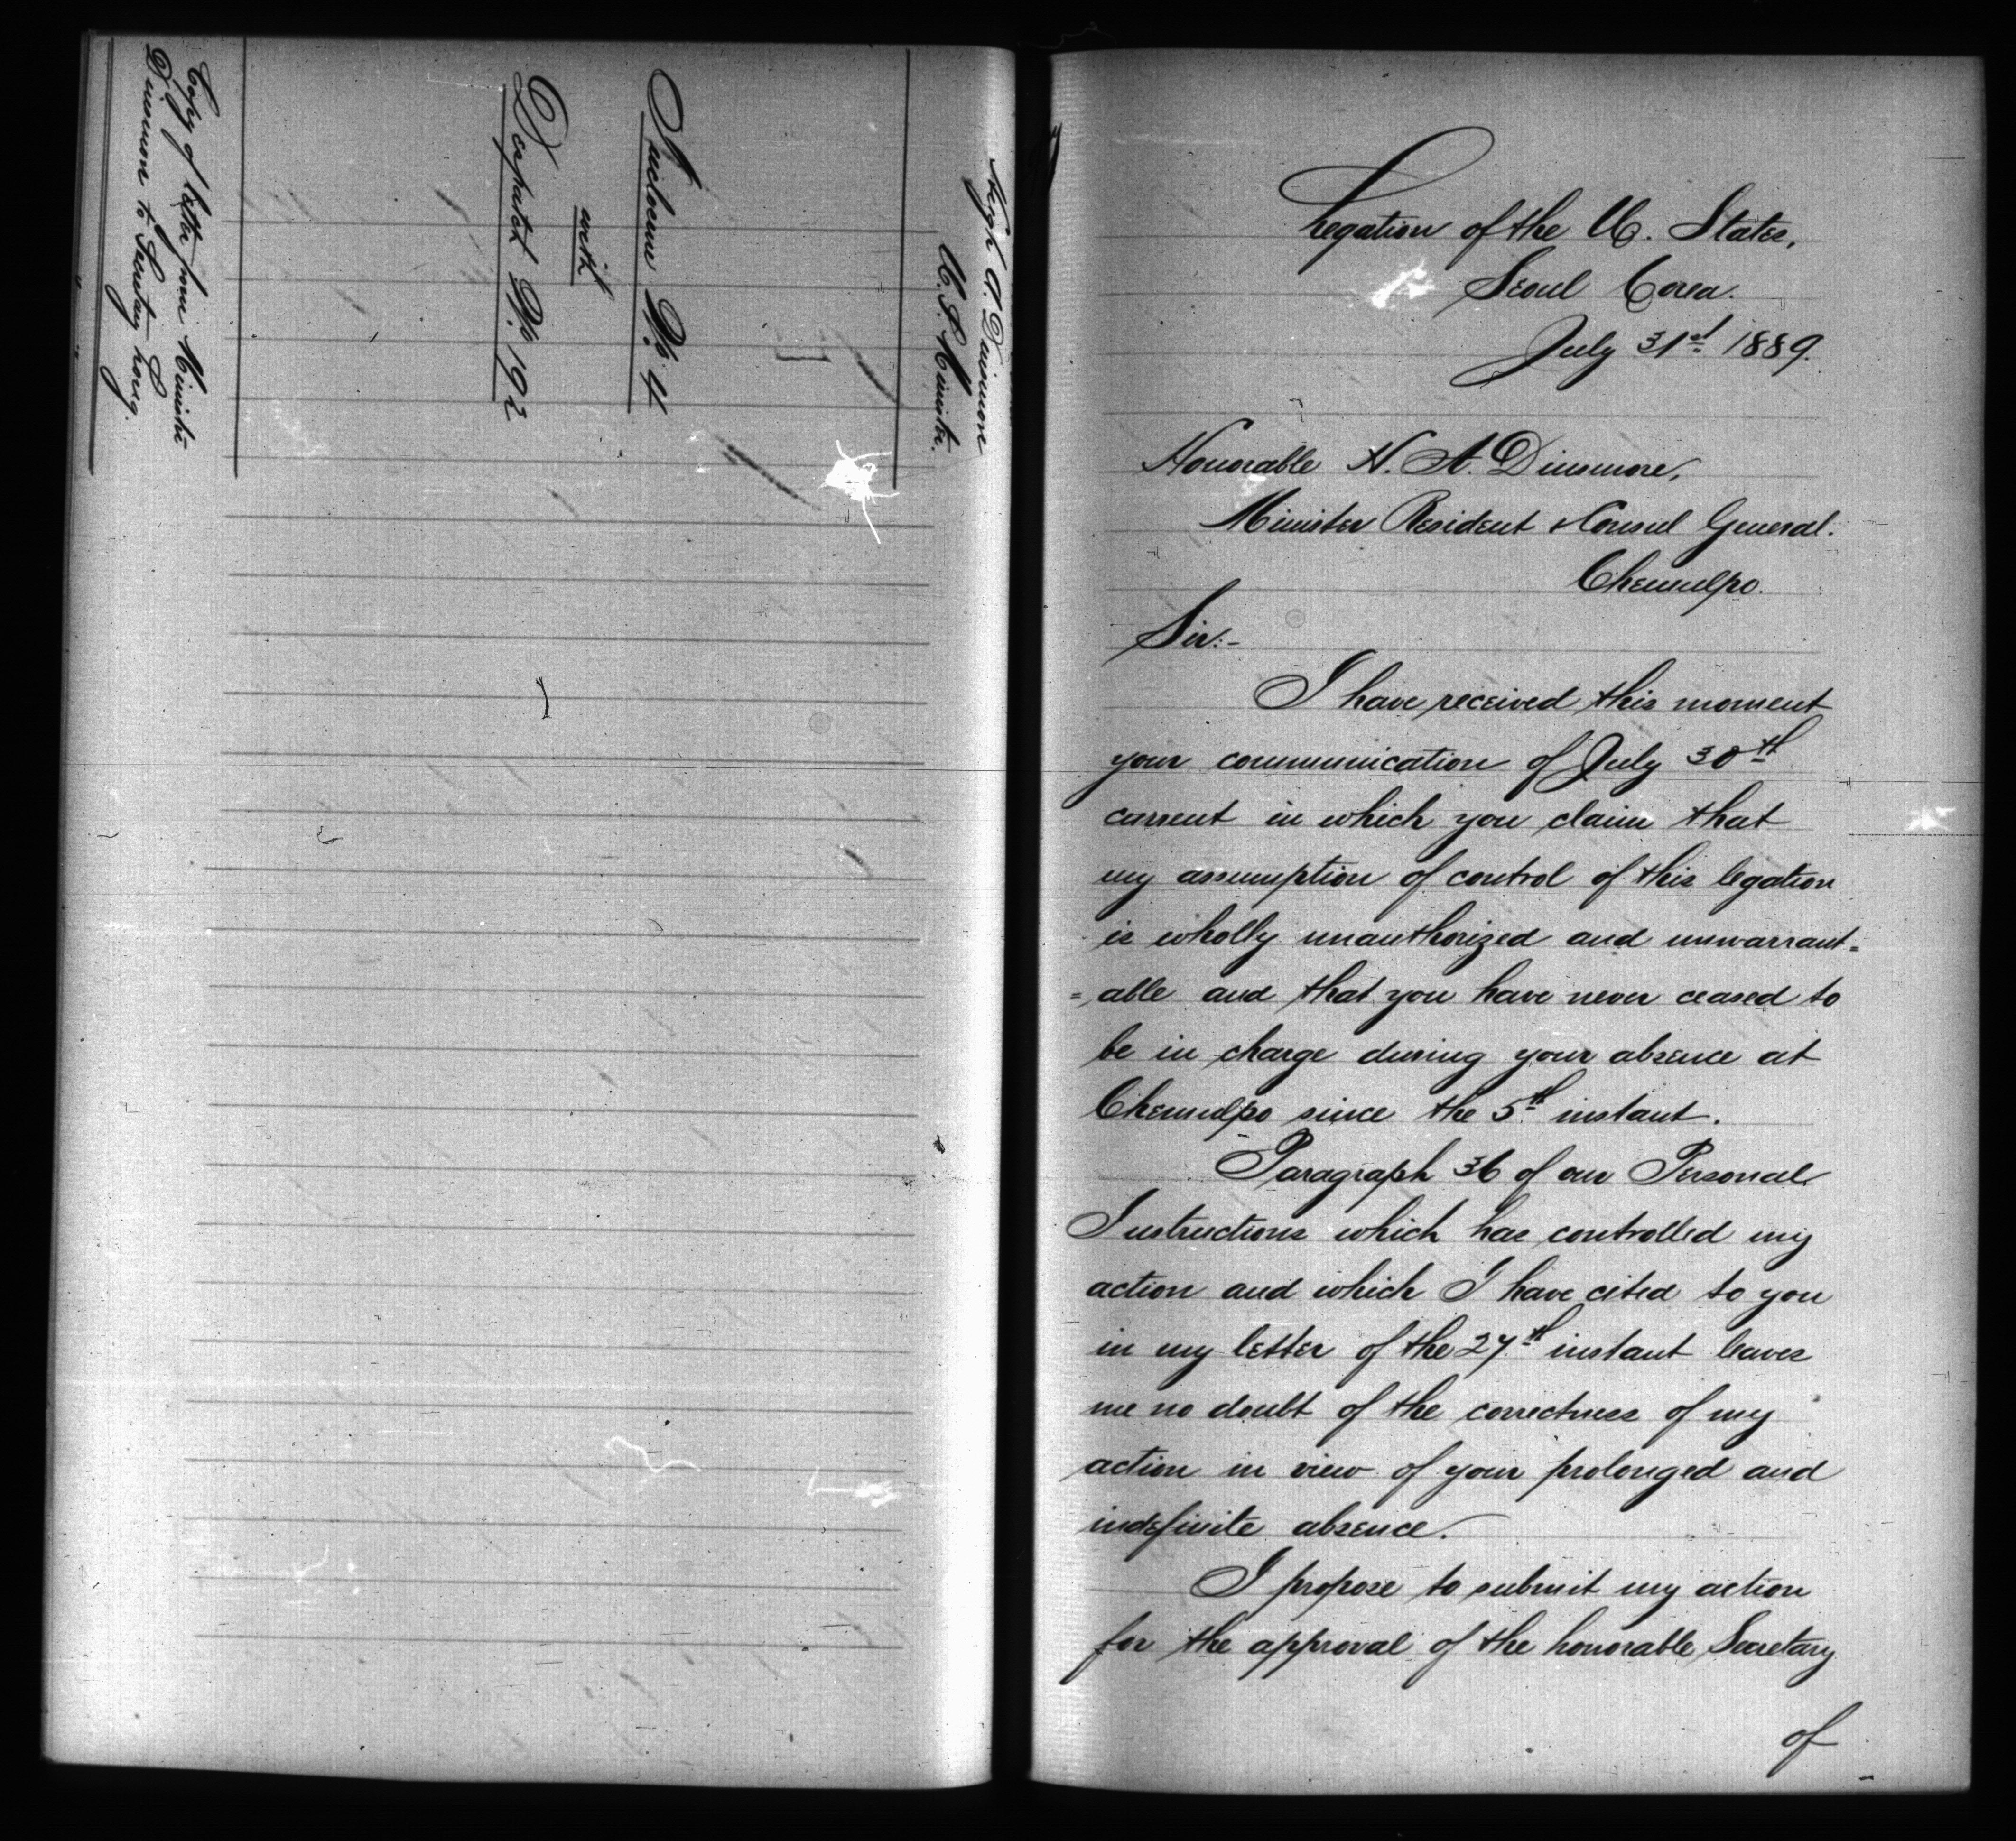 Hugh A. Dinsmore
U.S. Minister.
Inclosure No. 4
with
Despatch No. 192
Copy of letter from Minister
Dinsmore to Secretary Long.
Legation of the U. States,
Seoul Corea.
July 31st 1889.
Honorable H. A. Dinsmore,
Minister Resident & Consul General.
Chemulpo.
Sir:-
I have received this moment
your communication of July 30th
current in which you claim that
my assumption of control of this legation
is wholly unauthorized and unwarrant=
=able and that you have never ceased to
be in charge during your absence at
Chemulpo since the 5th instant.
Paragraph 36 of our Personal
Instructions which has controlled my
action and which I have cited to you
in my letter of the 27th instant leaves
me no doubt of the correctness of my
action in view of your prolonged and
indefinite absence.
I propose to submit my action
for the approval of the honorable Secretary
of